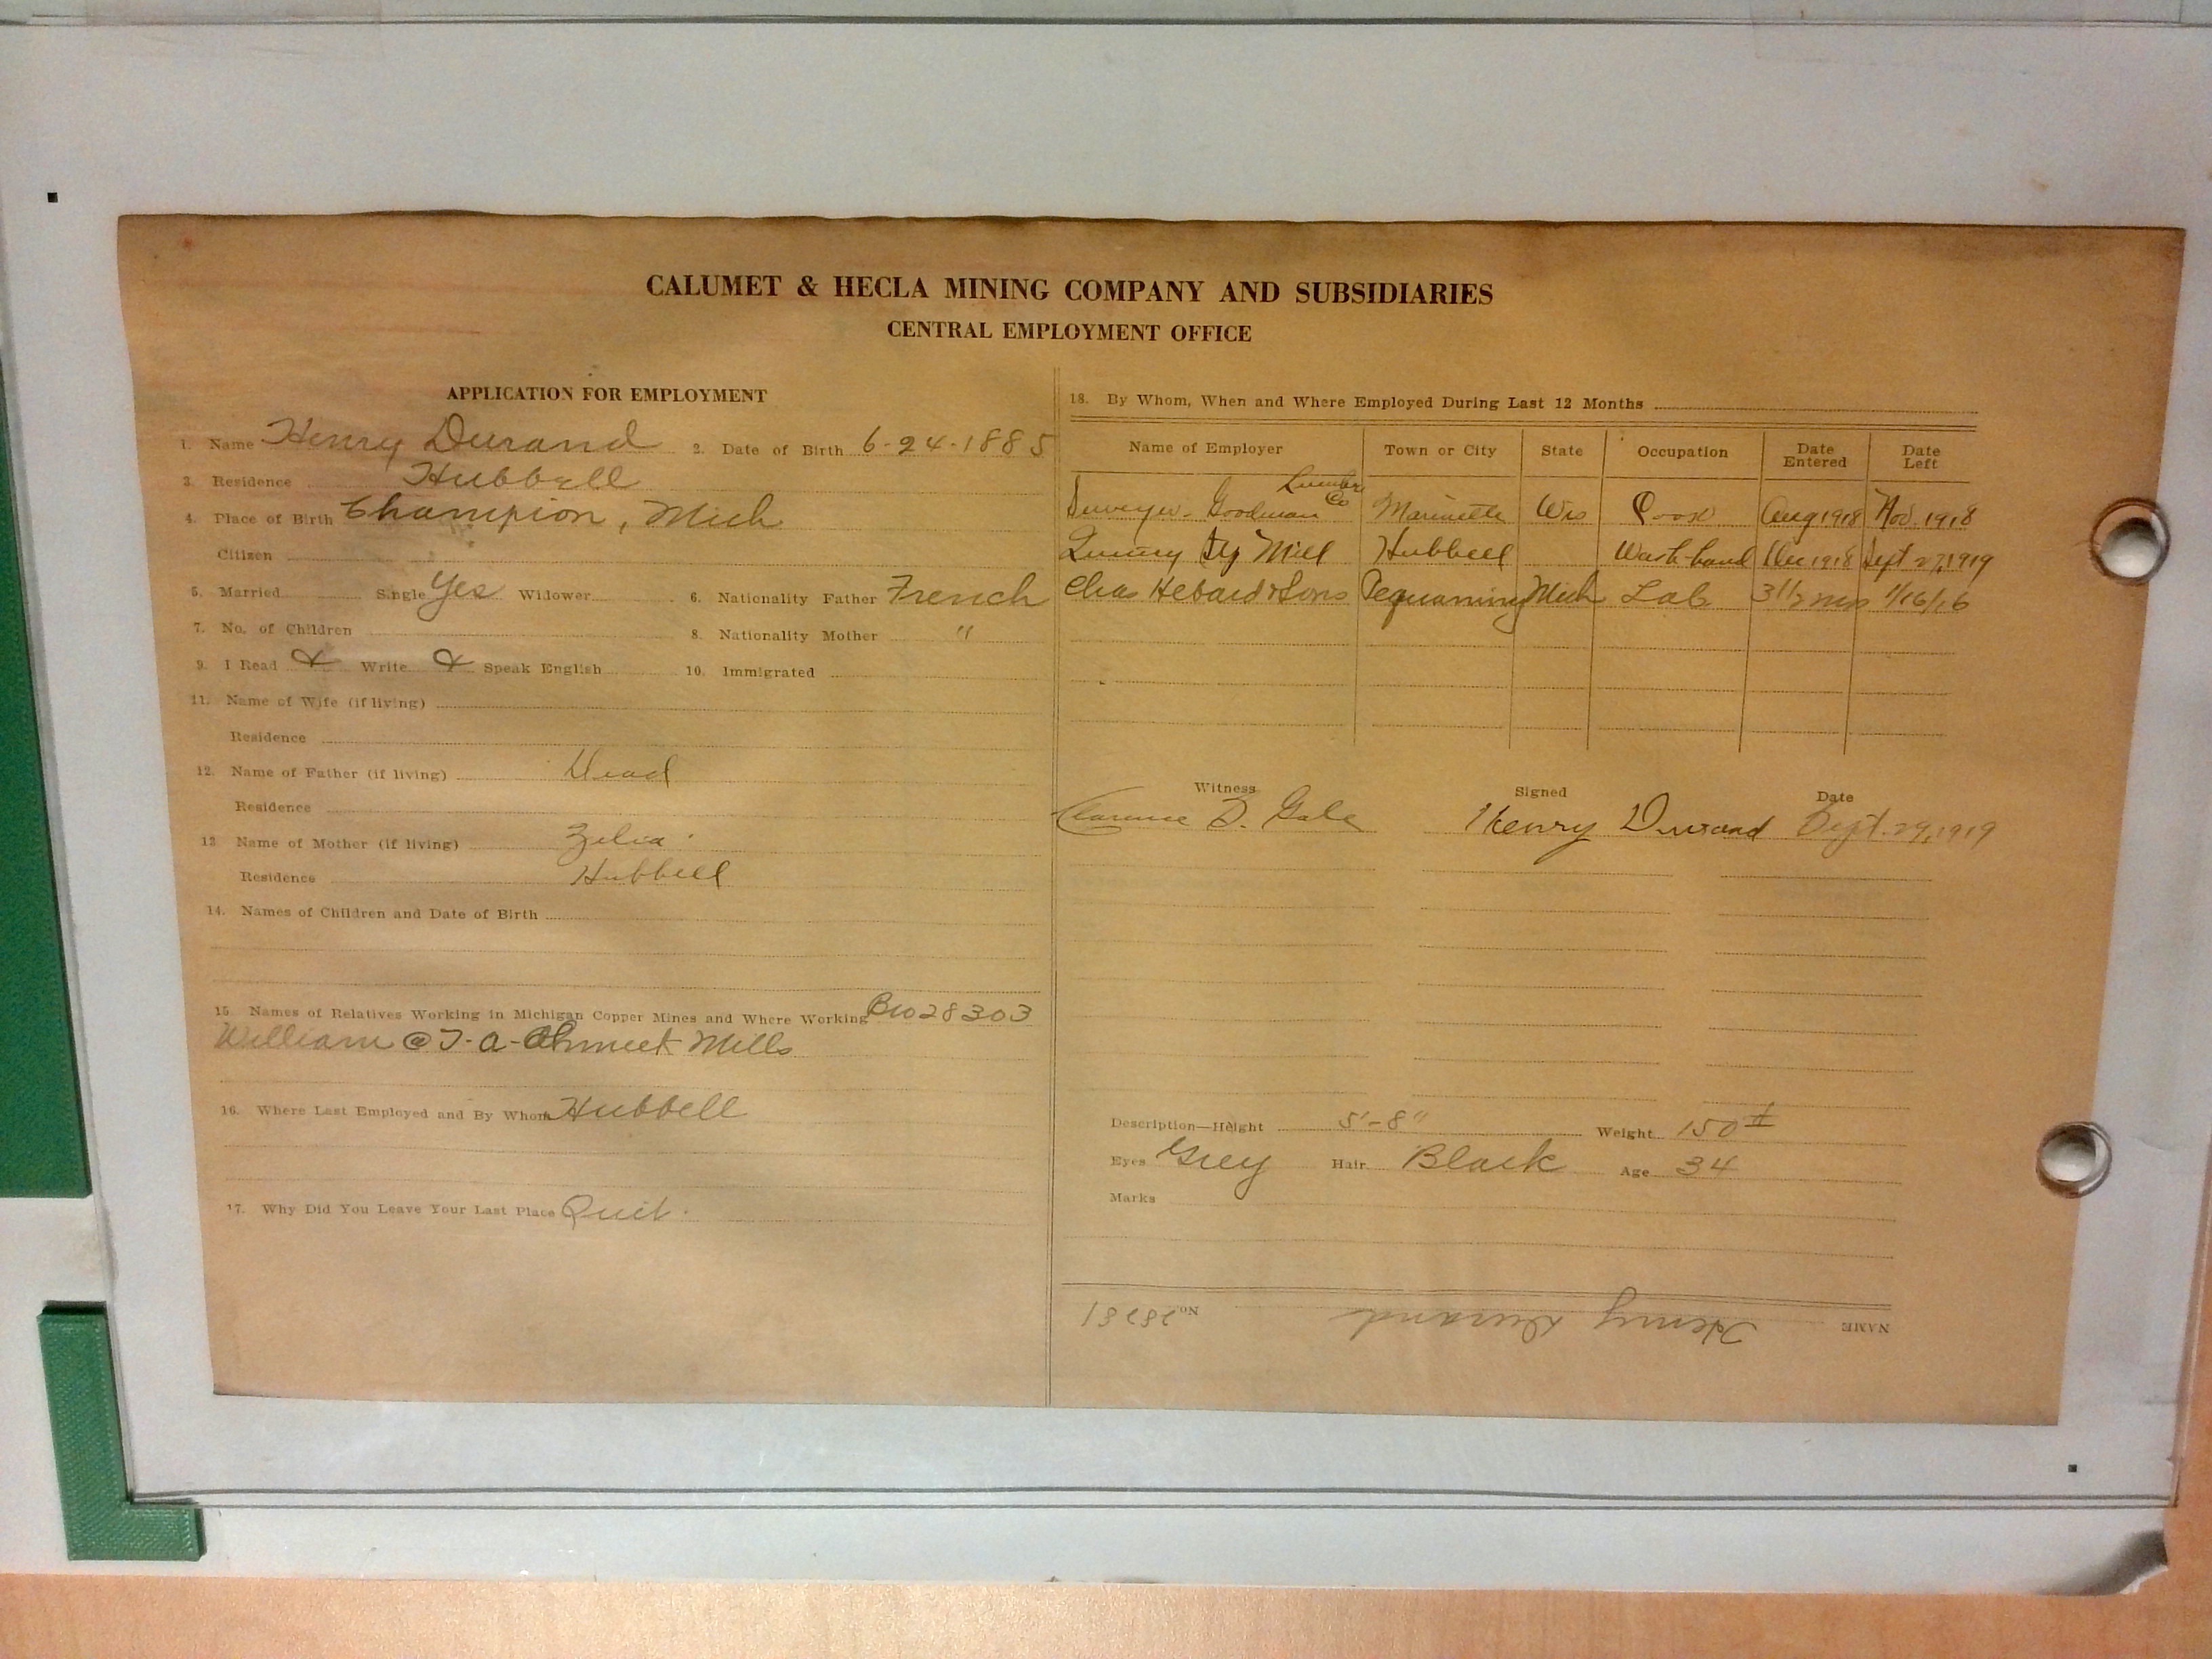 CALUMET & HECLA MINING COMPANY AND SUBSIDIARIES
CENTRAL EMPLOYMENT OFFICE
APPLICATION FOR EMPLOYMENT
1. Name Henry Durand 2. Date of Birth 6-24-1885
3. Residence Hubbell
4. Place of Birth Champion, Mich
Citizen
5. Married Single Yes Widower 6. Nationality Father French
7. No. of Children 8. Nationality Mother "
9. I Read & Write & Speak English 10. Immigrated
11. Name of Wife (if living)
Residence
12. Name of Father (if living) Dead
Residence
13 Name of Mother (if living) Zelia
Residence Hubbell
14. Names of Children and Date of Birth
15. Names of Relatives Working in Michigan Copper Mines and Where Working Bro 28303
William @ T-a-Ahmeek Mills
16. Where Last Employed and By Whom Hubbell
17. Why Did You Leave Your Last Place Quit.
18. By Whom, When and Where Employed During Last 12 Months
Name of Employer Town or City State Occupation Date Entered Date Left
Goodman Lumber Co Marinette Wis Cook Aug 1918 Nov. 1918
Mill Hubbell Wash-hand Dec 1918 Sept 27, 1919
Chas Hebard & Sons Pequaming Mich Lab 3 1/2 mos 1/16/16
Witness Signed Date
Clarence D. Gale Henry Durand Sept. 29, 1919
Description—Height 5'-8" Weight 150#
Eyes Grey Hair Black Age 34
Marks
NAME Henry Durand No. 28281